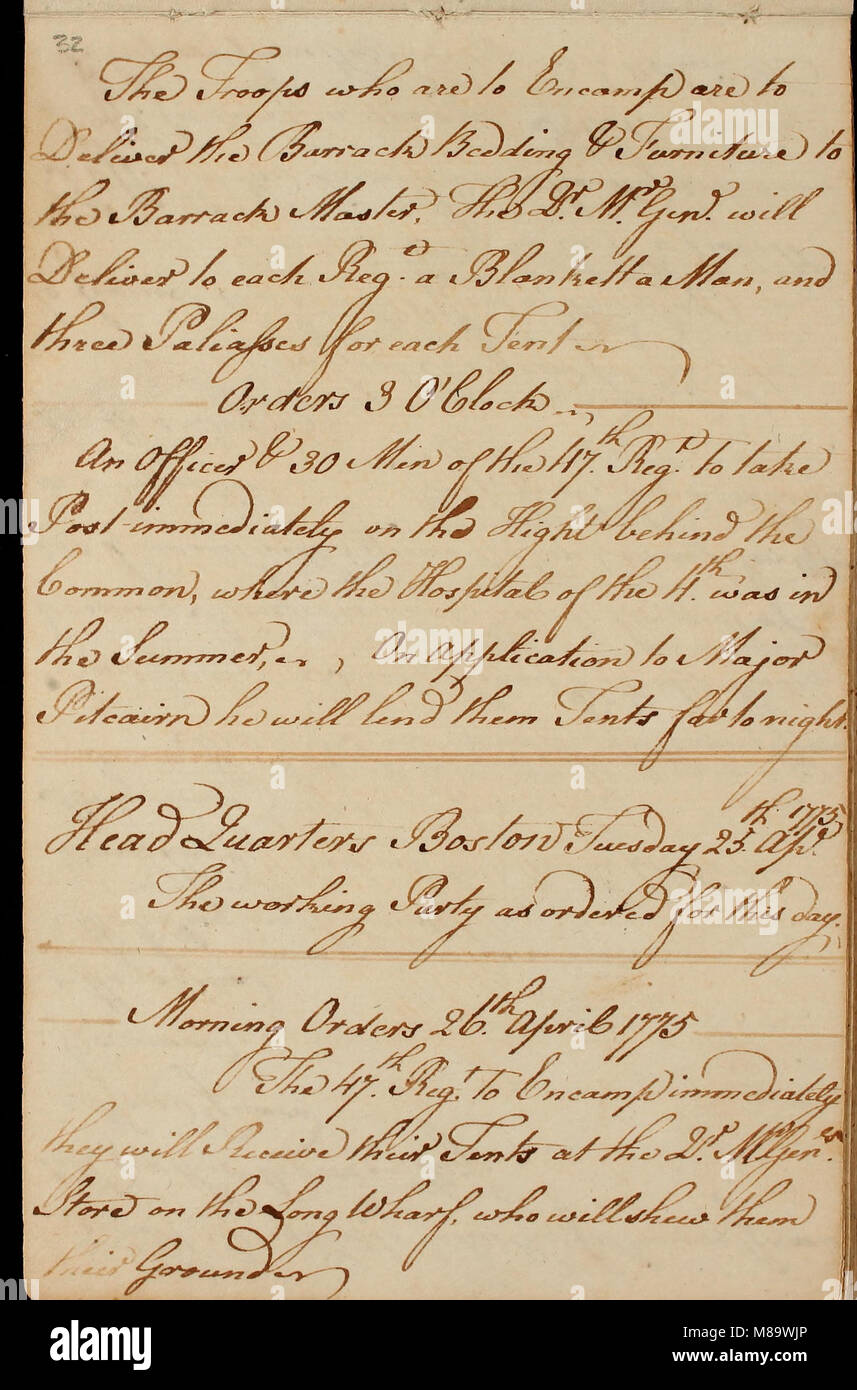 32
The Troops who are to Encamp are to
Deliver the Barrack Bedding & Furniture to
the Barrack Master. The Qr. Mr. Genl. will
Deliver to each Regt. a Blankett a Man, and
three Paliasses for each Tent
Orders 3 O'Clock
An Officer & 30 Men of the 47th. Regt. to take
Post immediately on the Hight behind the
Common, where the Hospital of the 4th. was in
the Summer, On Application to Major
Pitcairn he will lend them Tents for to night.
Head Quarters Boston Tuesday 25th. Apl. 1775
The working Party as ordered for this day.
Morning Orders 26th. April 1775
The 47th. Regt. to Encamp immediately
they will Receive their Tents at the Qr. Mr. Genls.
Store on the Long Wharf, who will shew them
their Ground
alamy
Image ID: M89WJP
www.alamy.com